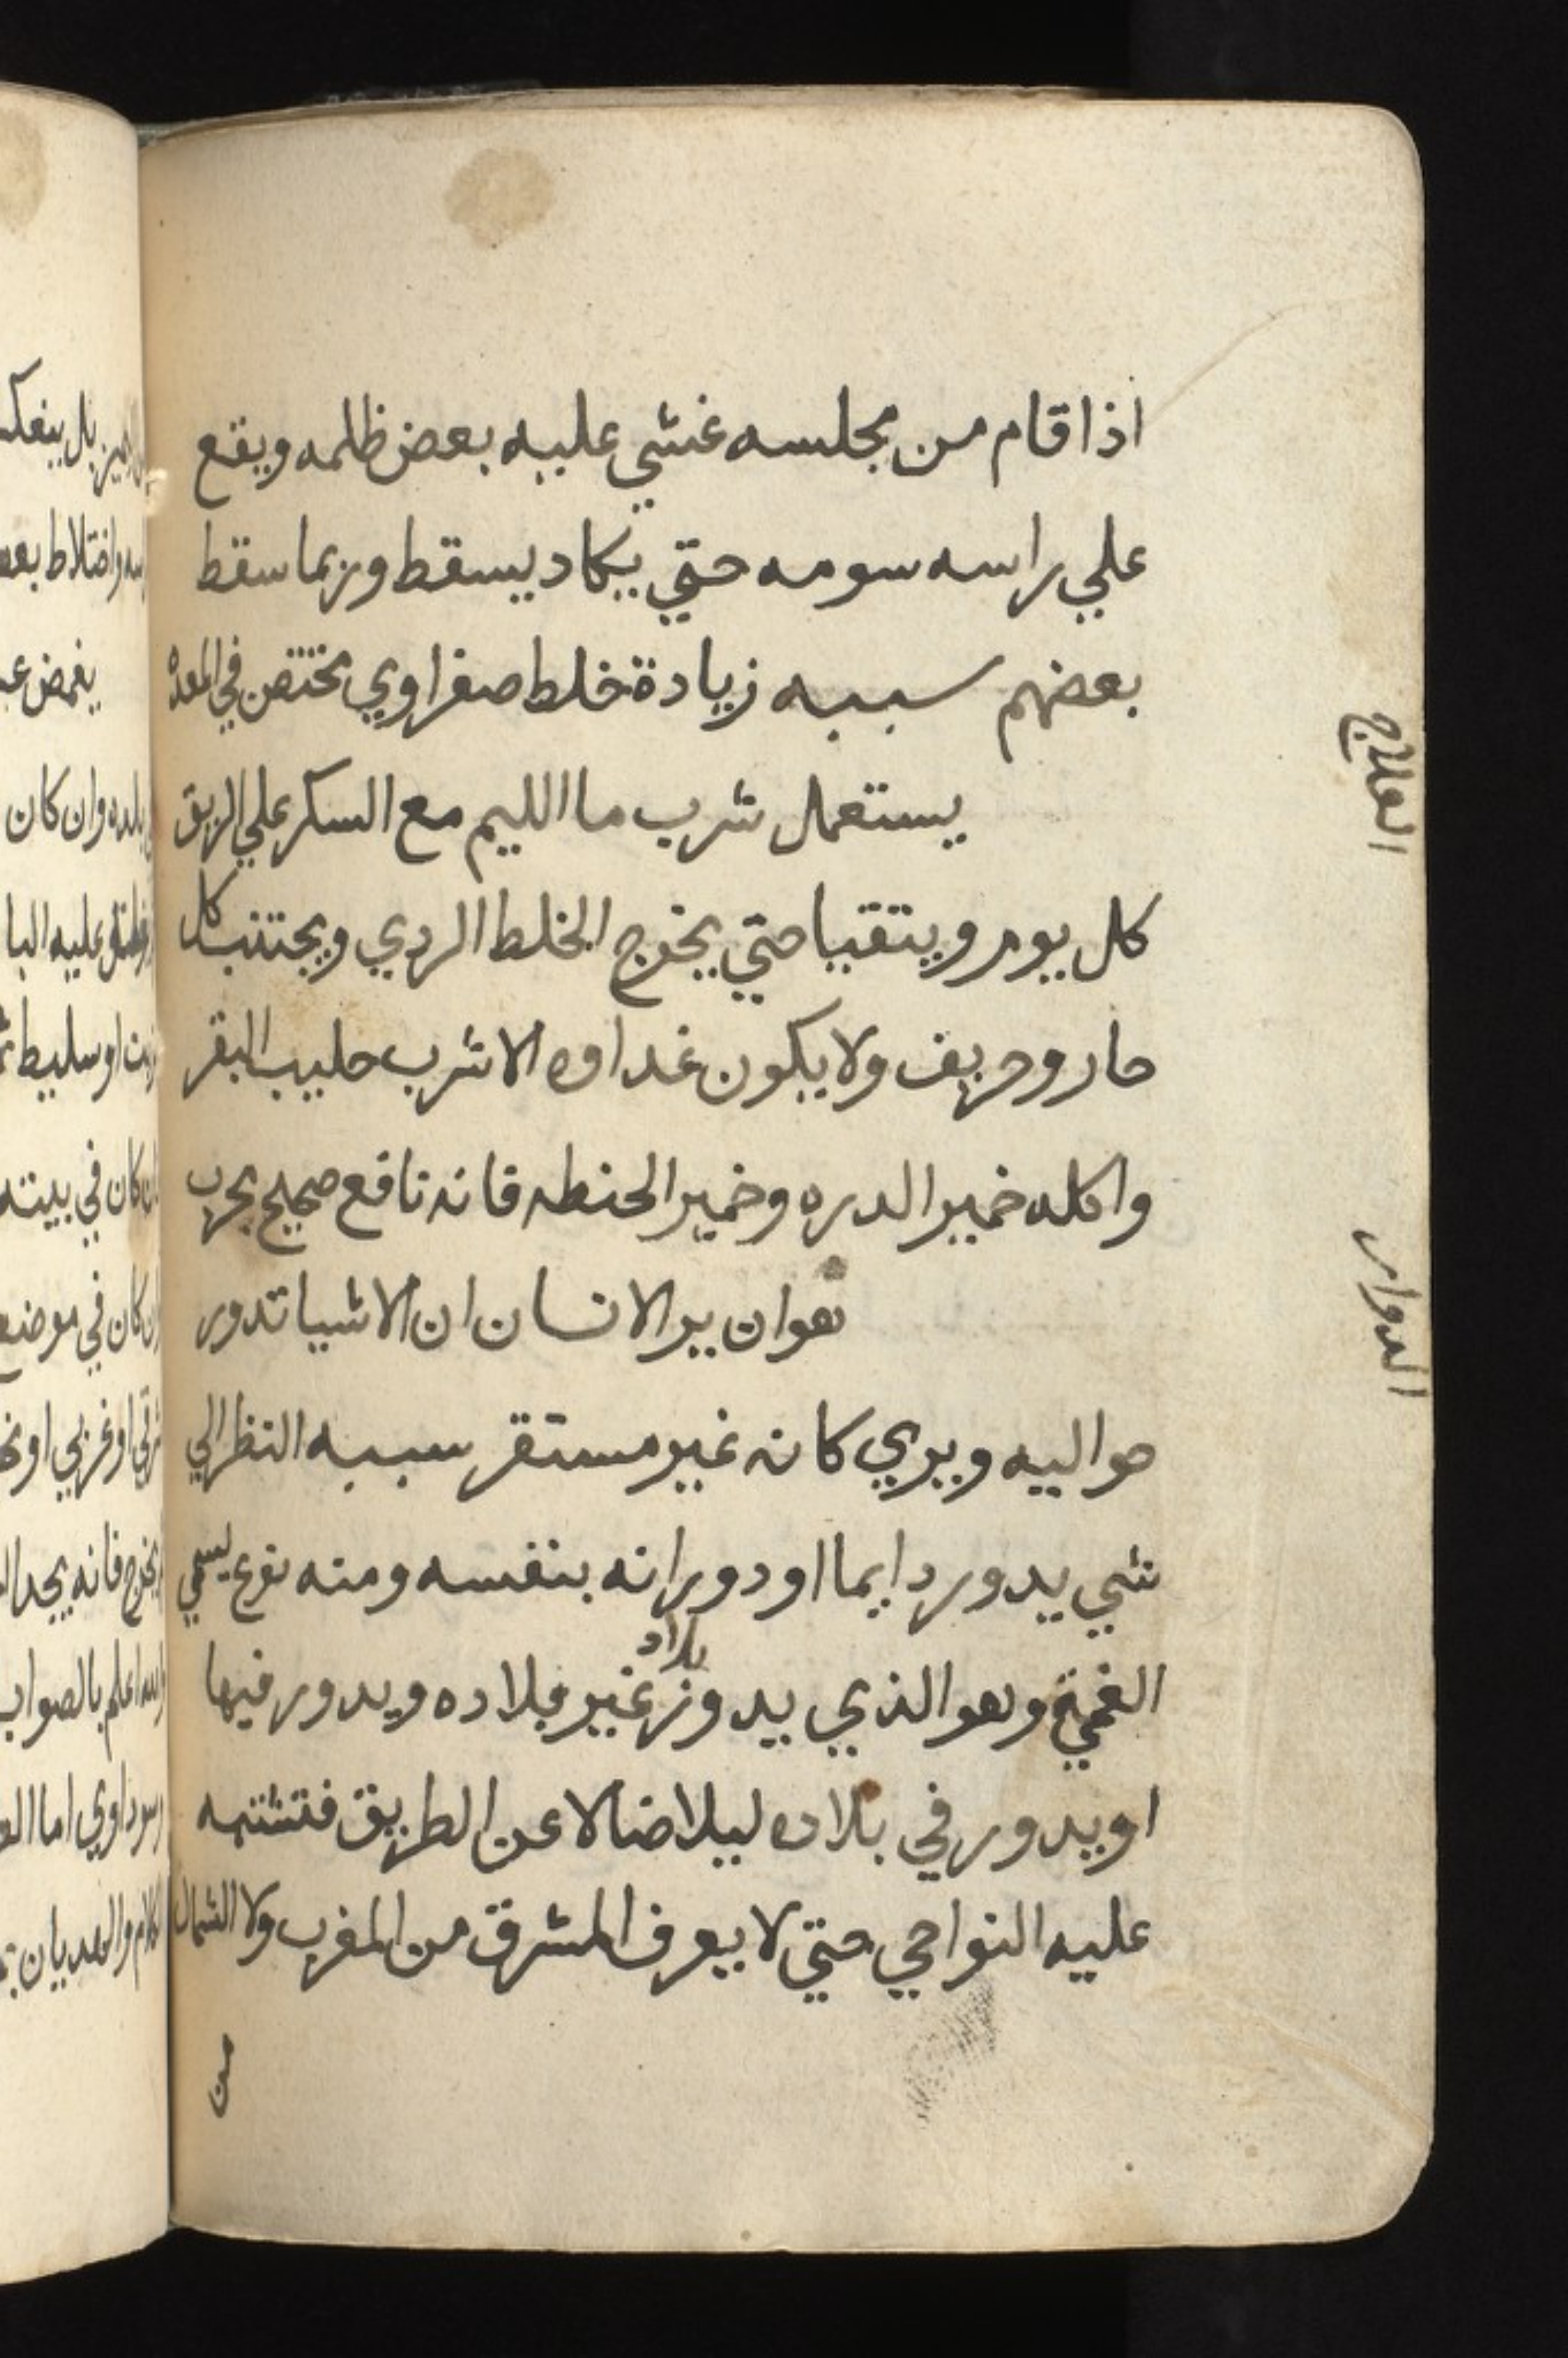 اذا قام من مجلسه غشي عليه بعض ظلمه ويقع
علي راسه سومه حتي يكاد يسقط وربما سقط
بعضهم سببه زيادة خلط صفراوي مختقن في المعده
العلاج
يستعمل شرب ما الليم مع السكر علي الريق
كل يوم ويتقيا حتي يخرج الخلط الردي ويجتنب كل
حار وحريف ولا يكون غداوه الا شرب حليب البقر
واكله خمير الدره وخمير الحنطه فانه نافع صحيح مجرب
الدوار
هو ان ير الانسان ان الاشيا تدور
حواليه ويري كانه غير مستقر سببه النظر الي
شي يدور دايما او دورانه بنفسه ومنه نوع يسمي
بلاد
الغمية وهو الذي يدور غير بلاده ويدور فيها
او يدور في بلاده ليلا ضالا عن الطريق فتشتبه
عليه النواحي حتي لا يعرف المشرق من المغرب ولا الشمال
من